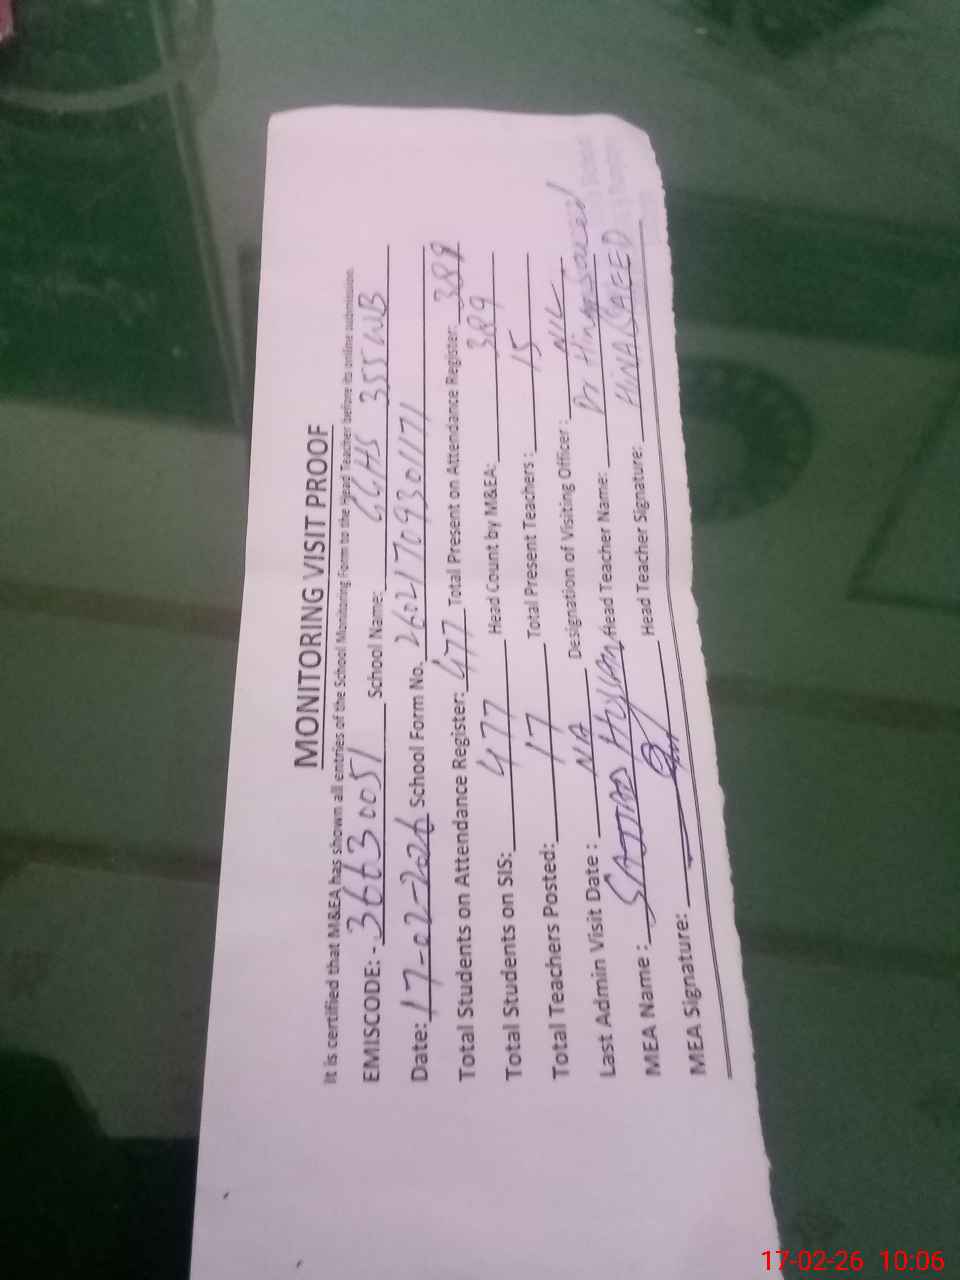 MONITORING VISIT PROOF
It is certified that M&EA has shown all entries of the School Monitoring Form to the Head Teacher before its online submission.
EMISCODE: - 36630051 School Name: GGHS 355 WB
Date: 17-02-2026 School Form No. 26021709301171
Total Students on Attendance Register: 477 Total Present on Attendance Register: 389
Total Students on SIS: 477 Head Count by M&EA: 389
Total Teachers Posted: 17 Total Present Teachers: 15
Last Admin Visit Date: NA Designation of Visiting Officer: NIL
MEA Name: Sajjad Hussain Head Teacher Name: Dr Hina Saeed
MEA Signature: Head Teacher Signature: HINA SAEED
17-02-26 10:06